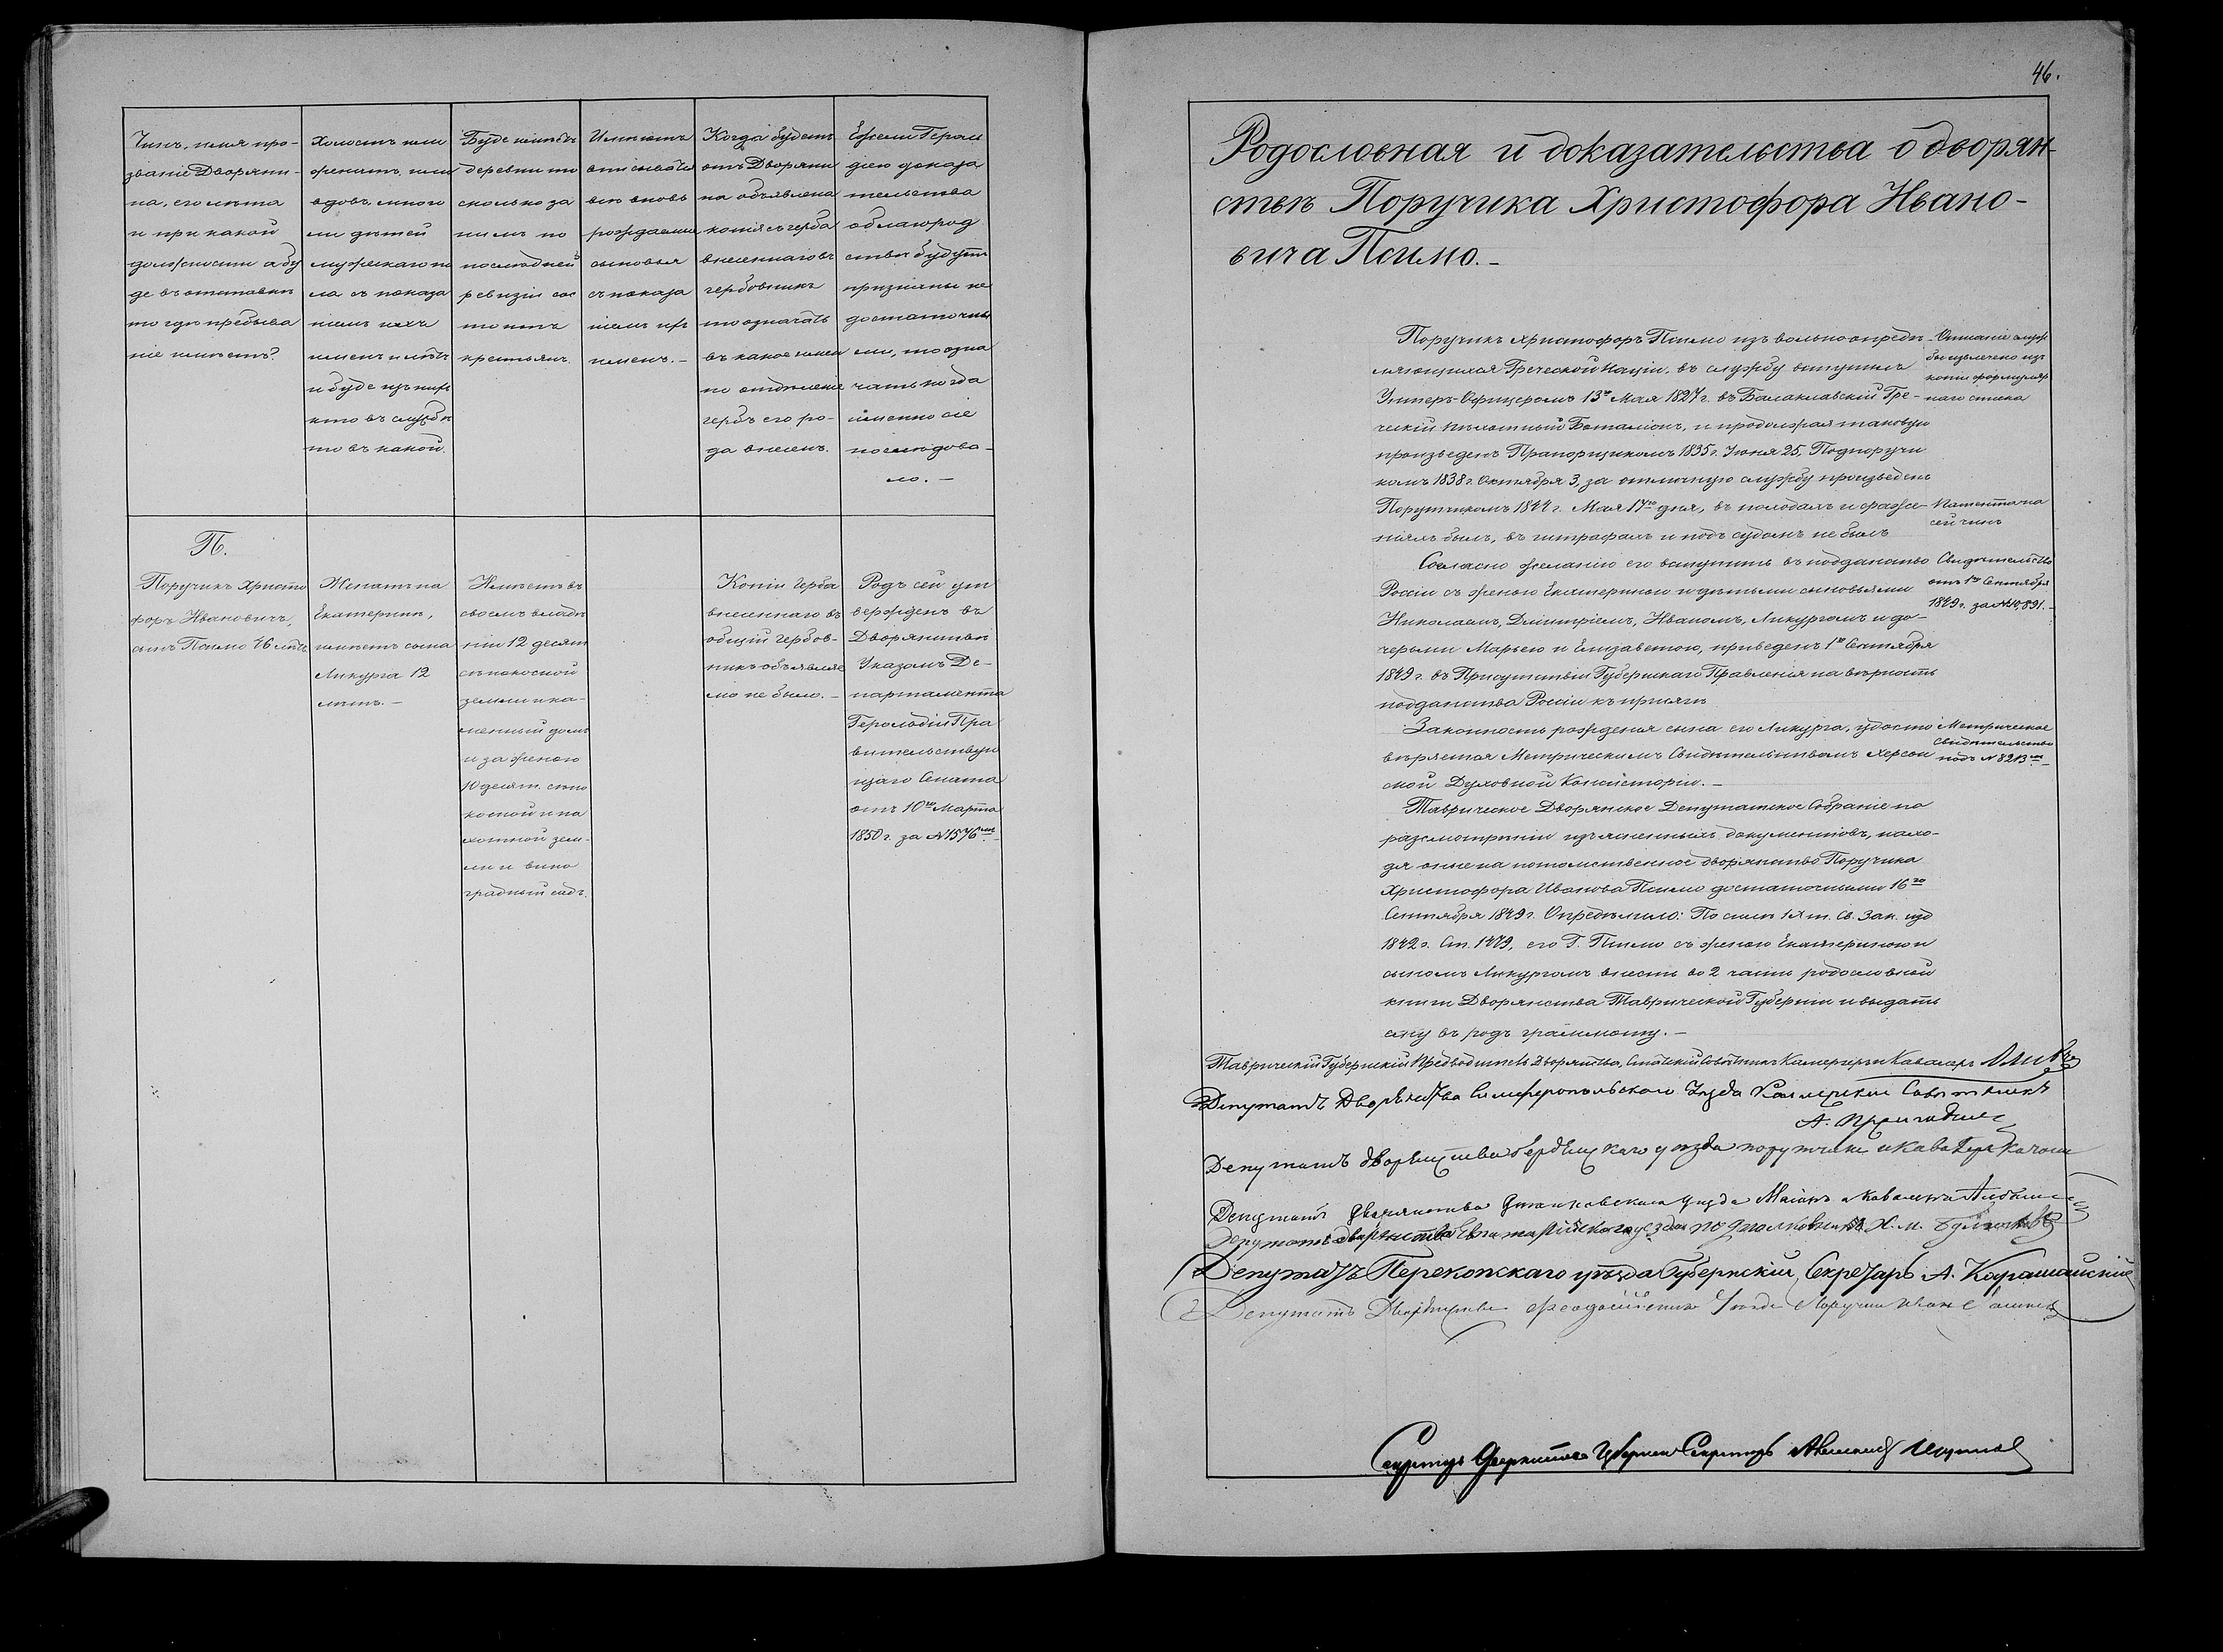 Чинъ, имя про-
званіе Дворяни-
на, его лѣта
и при какой
должности а бу
де въ отставкѣ
то гдѣ пребыва
ніе имѣетъ?
Холостъ или
женатъ, или
вдовъ, много
ли дѣтей
мужескаго по
ла съ показа
ніемъ ихъ
именъ и лѣтъ
и буде изъ нихъ
кто въ службѣ
то въ какой.
Буде имѣетъ
деревни то
сколько за
нимъ по
послѣдней
ревизіи сос
тоитъ
крестьянъ.
Имѣютъ
вписываться
вновь
рождаемые
сыновья
съ показа
ніемъ ихъ
именъ. —
Когда будетъ
отъ Дворяни
на объявлена
копія съ герба
внесеннаго въ
гербовникъ
то означать
въ какое имен
но отдѣленіе
гербъ его ро-
да внесенъ.
Ежели Героль
діею доказа
тельства
о благород
ствѣ будутъ
признаны не
достаточны
ми, то озна
чать когда
именно сіе
послѣдова-
ло. —
П.
Поручикъ Христо
форъ Ивановичъ,
сынъ Псимо 46 лѣтъ
Женатъ на
Екатеринѣ,
имѣетъ сына
Ликурга 12
лѣтъ. —
Имѣетъ въ
своемъ владѣ
ніи 12 десят
сѣнокосной
земли и ка-
менный домъ
и за женою
10 десят. сѣно
косной и па
хотной зем-
ли и вино
градный садъ.
Копіи Герба
внесеннаго въ
общій гербов-
никъ объявляе
мо не было. —
Родъ сей ут
вержденъ въ
Дворянствѣ
Указомъ Де-
партамента
Герольдіи Пра
вительствую
щаго Сената
отъ 10го Марта
1850 г. за № 1576мъ. —
46.
Родословная и доказательства о дворян-
ствѣ Поручика Христофора Ивано-
вича Псимо. —
Поручикъ Христофоръ Псимо изъ вольноопредѣ-
ляющихся Греческой Націи, въ службу вступилъ
Унтеръ-Офицеромъ 13го Мая 1827 г. въ Балаклавскій Гре-
ческій Пѣхотный Баталіонъ, и продолжая таковую
произведенъ Прапорщикомъ 1835 г. Іюня 25, Подпоручи
комъ 1838 г. Октября 3, за отличную службу произведенъ
Поручикомъ 1844 г. Мая 17го дня, въ походахъ и сраже-
ніяхъ былъ, въ штрафахъ и подъ судомъ не былъ
Описаніе служ
бы извлечено изъ
копіи формуляр
наго списка
Патентъ на
сей чинъ
Согласно желанію его вступить въ подданство
Россіи съ женою Екатериною и дѣтьми сыновьями
Николаемъ, Дмитріемъ, Иваномъ, Ликургомъ и до-
черьми Марьею и Елизаветою, приведенъ 1го Сентября
1849 г. въ Присутствіи Губернскаго Правленія на вѣрность
подданства Россіи къ присягѣ
Свидѣтельство
отъ 1го Сентября
1849 г. за № 10,891. —
Законность рожденія сына его Ликурга, удосто
вѣряется Метрическимъ Свидѣтельствомъ Херсон
ской Духовной Консисторіи. —
Метрическое
свидѣтельство
подъ № 8213мъ. —
Таврическое Дворянское Депутатское Собраніе по
разсмотрѣніи изъясненныхъ документовъ, нахо-
дя оные на потомственное дворянство Поручика
Христофора Иванова Псимо достаточными 16го
Сентября 1849 г. Опредѣлило: По силѣ IX т. Св. Зак. изд
1842 г. Ст. 1479, его Г. Псимо съ женою Екатериною и
сыномъ Ликургомъ внесть во 2 часть родословной
книги Дворянства Таврической Губерніи и выдать
ему въ родъ грамоту. —
Таврическій Губернскій Предводитель Дворянства, Статскій Совѣтникъ Камергеръ и Кавалеръ
Депутатъ Дворянства Симферопольскаго Уезда Коллежскій Совѣтникъ
Депутатъ дворянства бердянскаго уезда поручикъ и Кавалеръ
Депутатъ дворянства Днѣпровскаго уезда Маіоръ и Кавалеръ
Депутатъ дворянства Евпаторійскаго уезда подполковникъ Х. М.
Депутатъ Перекопскаго уѣзда Губернскій Секретарь А. Карашайскій
Депутатъ Дворянства Феодосійскаго Уезда Поручикъ Иванъ
Секретарь Дворянства Губернскій Секретарь